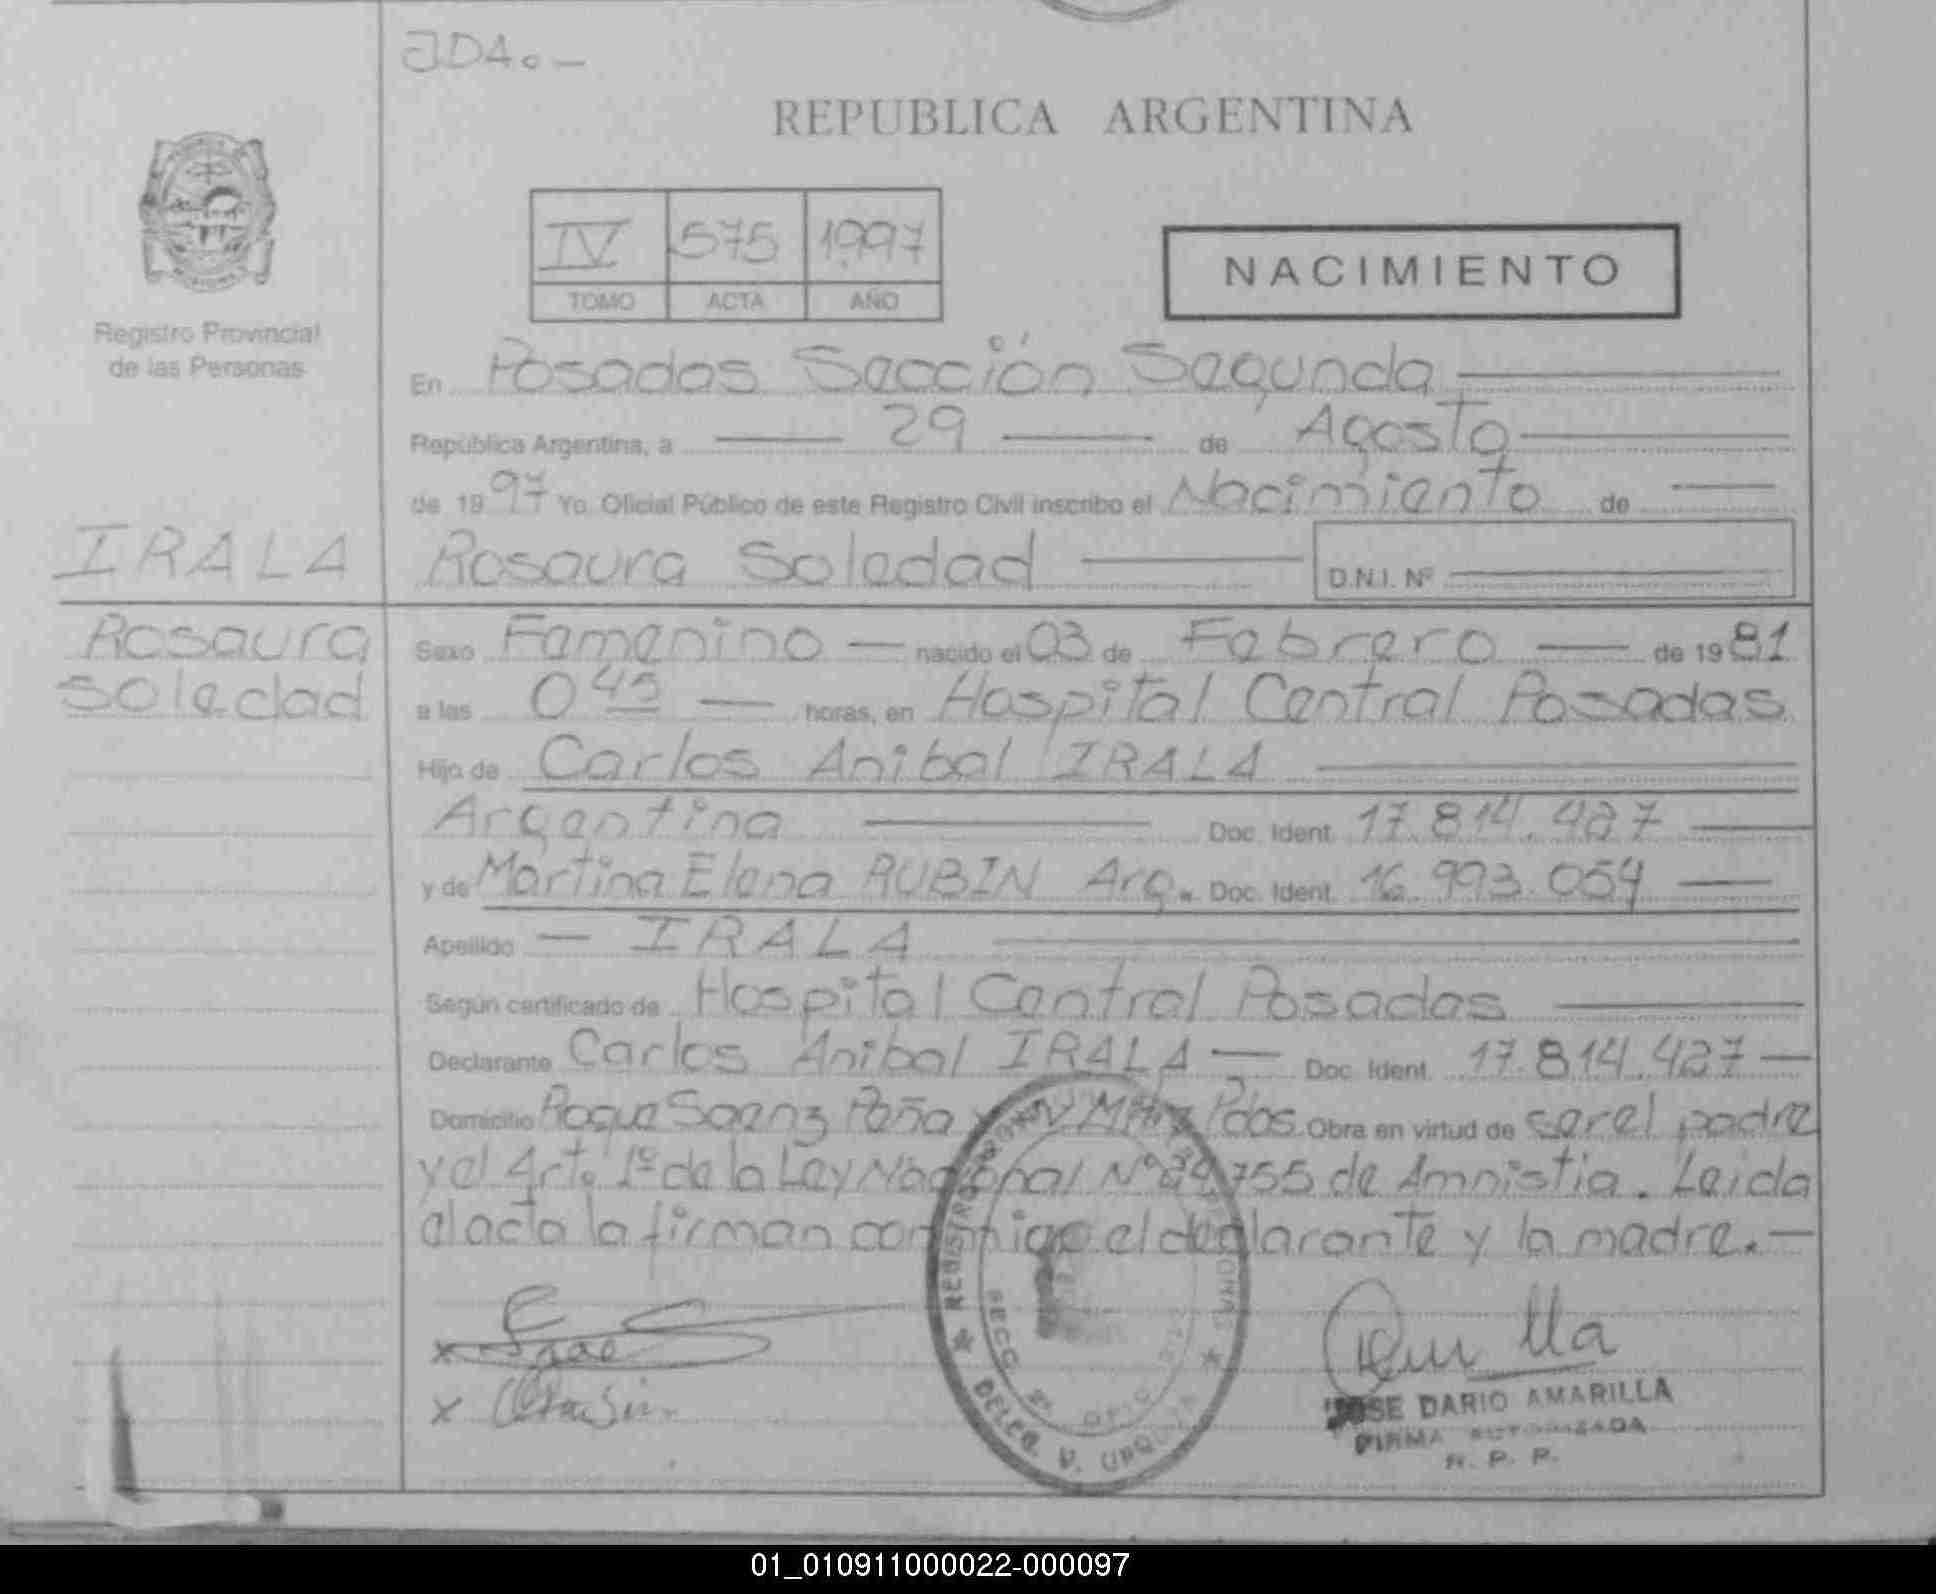 JDA.-
REPUBLICA ARGENTINA
IV 575 1997
TOMO ACTA AÑO
NACIMIENTO
Registro Provincial
de las Personas
En Posadas Sección Segunda
República Argentina, a 29 de Agosto
de 1997 Yo. Oficial Público de este Registro Civil inscribo el Nacimiento de
IRALA
Rosaura Soledad D.N.I. Nº
Rosaura
Soledad
Sexo Femenino nacido el 03 de Febrero de 1981
a las 0 45 horas, en Hospital Central Posadas
Hijo de Carlos Anibal IRALA
Argentina Doc. Ident. 17.814.427
y de Martina Elena RUBIN Arg. Doc. Ident. 16.993.054
Apellido IRALA
Según certificado de Hospital Central Posadas
Declarante Carlos Anibal IRALA Doc. Ident. 17.814.427
Domicilio Roque Saenz Peña Pdas. Obra en virtud de ser el padre
y el Art. 1º de la Ley Nacional Nº 24.755 de Amnistia. Leida
el acta la firman conmigo el declarante y la madre.-
REGISTRO
SECC. 2ª
DELEG. V. URQUIZA
JOSE DARIO AMARILLA
FIRMA AUTORIZADA
R. P. P.
01_010911000022-000097